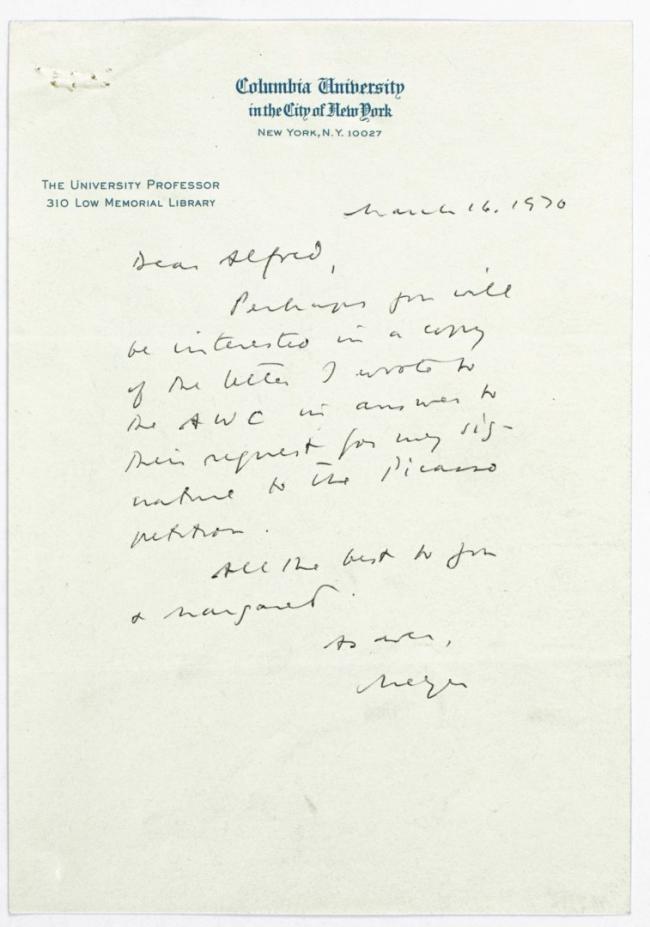 Columbia University
in the City of New York
NEW YORK, N.Y. 10027
THE UNIVERSITY PROFESSOR
310 LOW MEMORIAL LIBRARY
March 16. 1970
Dear Alfred,
Perhaps you will
be interested in a copy
of the letter I wrote to
the AWC in answer to
their request for my sig-
nature to the Picasso
petition.
All the best to you
& Margaret.
As ever,
Meyer